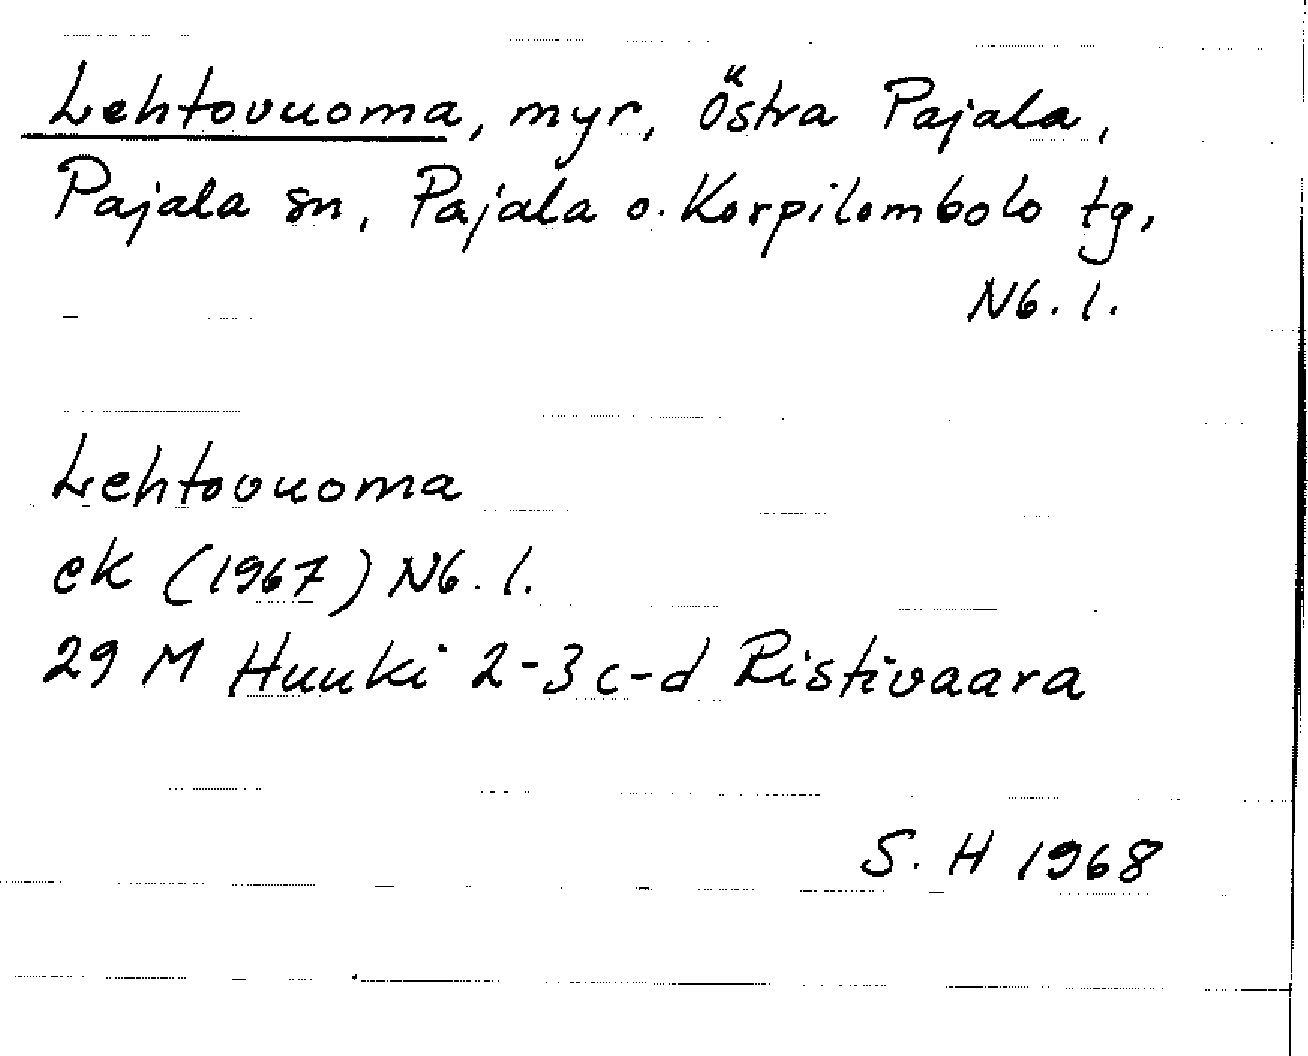 Lehtovuoma, myr, Östra Pajala,
Pajala sn, Pajala o. Korpilombolo tg,
Nb. l.
Lehtovuoma
ek (1967) Nb. l.
29 M Huuki 2-3 c-d Ristivaara
S. H 1968